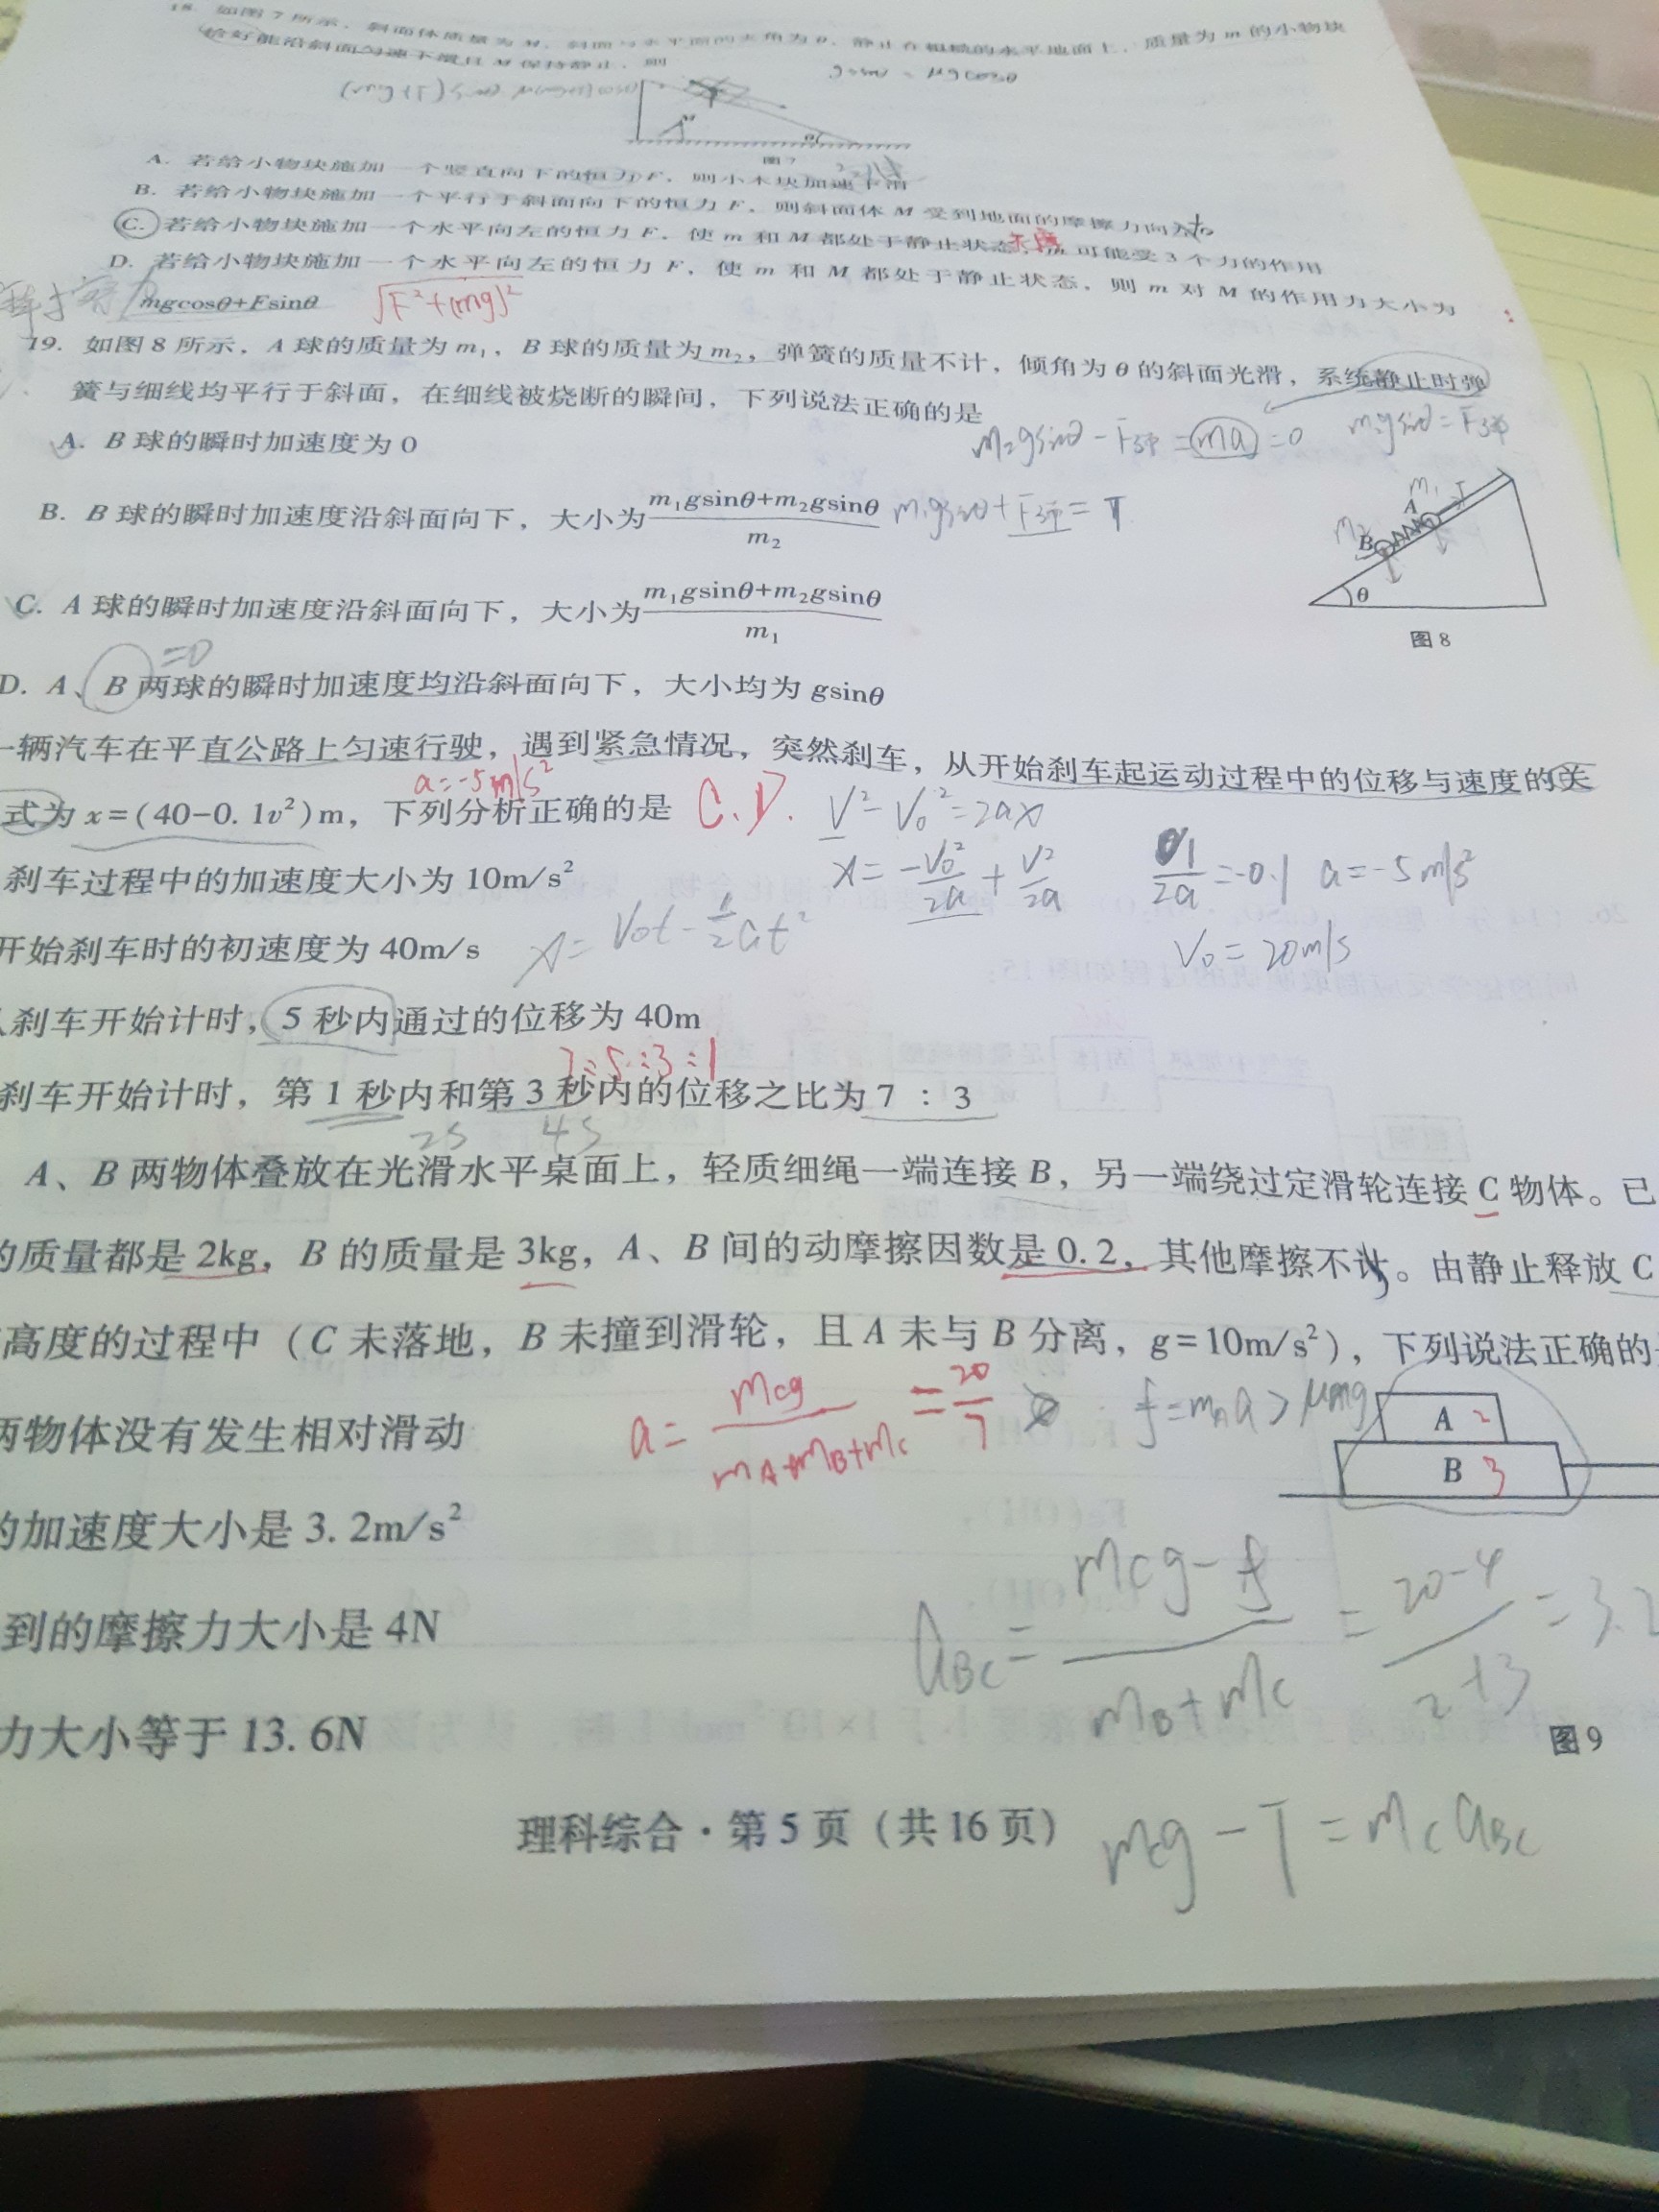 18. 如图7所示，斜面体质量为M，斜面与水平面的夹角为θ，静止在粗糙的水平地面上，质量为m的小物块
恰好能沿斜面匀速下滑且M保持静止，则
gsinθ = μgcosθ
M
图7
A. 若给小物块施加一个竖直向下的恒力F，则小木块加速下滑
B. 若给小物块施加一个平行于斜面向下的恒力F，则斜面体M受到地面的摩擦力向
C. 若给小物块施加一个水平向左的恒力F，使m和M都处于静止状态，可能受3个力的作用
D. 若给小物块施加一个水平向左的恒力F，使m和M都处于静止状态，则m对M的作用力大小为
mgcosθ+Fsinθ √F²+(mg)²
19. 如图8所示，A球的质量为m₁，B球的质量为m₂，弹簧的质量不计，倾角为θ的斜面光滑，系统静止时弹
簧与细线均平行于斜面，在细线被烧断的瞬间，下列说法正确的是
m₂gsinθ－F弹=ma=0 m₂gsinθ=F弹
A. B球的瞬时加速度为0
B. B球的瞬时加速度沿斜面向下，大小为(m₁gsinθ+m₂gsinθ)/m₂ m₁gsinθ+F弹=T
m₁ T
A
m₂
B
θ
C. A球的瞬时加速度沿斜面向下，大小为(m₁gsinθ+m₂gsinθ)/m₁
图8
=0
D. A、B两球的瞬时加速度均沿斜面向下，大小均为gsinθ
一辆汽车在平直公路上匀速行驶，遇到紧急情况，突然刹车，从开始刹车起运动过程中的位移与速度的关
a=-5m/s²
式为x=(40-0.1v²)m，下列分析正确的是 C.D. V²-V₀²=2ax
刹车过程中的加速度大小为10m/s² x=-V₀²/2a+V²/2a 1/2a=-0.1 a=-5m/s²
开始刹车时的初速度为40m/s x=V₀t-½at² V₀=20m/s
刹车开始计时，5秒内通过的位移为40m
7:5:3:1
刹车开始计时，第1秒内和第3秒内的位移之比为7:3
2s 4s
A、B两物体叠放在光滑水平桌面上，轻质细绳一端连接B，另一端绕过定滑轮连接C物体。已
的质量都是2kg，B的质量是3kg，A、B间的动摩擦因数是0.2，其他摩擦不计。由静止释放C
高度的过程中（C未落地，B未撞到滑轮，且A未与B分离，g=10m/s²），下列说法正确的
两物体没有发生相对滑动 a=mcg/(mA+mB+mC)=20/7 f=mAa>μmg
A 2
B 3
的加速度大小是3.2m/s²
到的摩擦力大小是4N aBC=(mcg-f)/(mB+mC)=(20-4)/(2+3)=3.2
力大小等于13.6N
图9
理科综合·第5页（共16页）
mcg-T=mcaBC